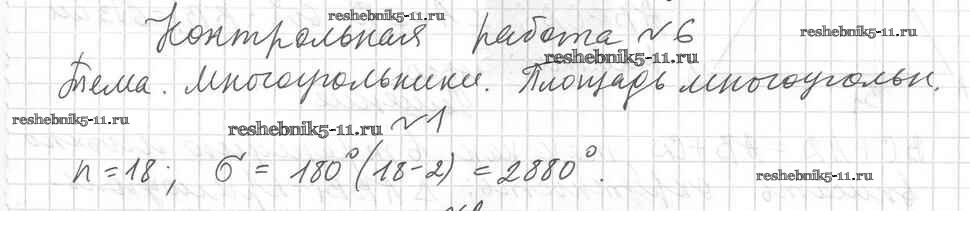 reshebnik5-11.ru
Контрольная работа №6
reshebnik5-11.ru
reshebnik5-11.ru
Тема. Многоугольники. Площадь многоугольн.
reshebnik5-11.ru
reshebnik5-11.ru
№1
n = 18; σ = 180°(18-2) = 2880°.
reshebnik5-11.ru